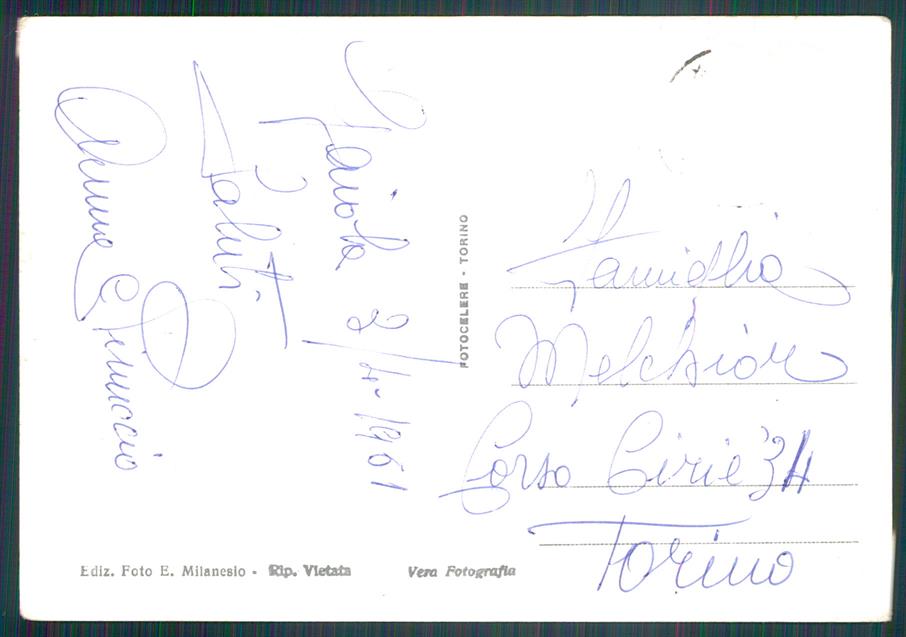 Paiola 2/4-1961
Saluti
Anna e Pinuccio
FOTOCELERE - TORINO
Famiglia
Melchior
Corso Cirie' 34
Torino
Ediz. Foto E. Milanesio - Rip. Vietata
Vera Fotografia